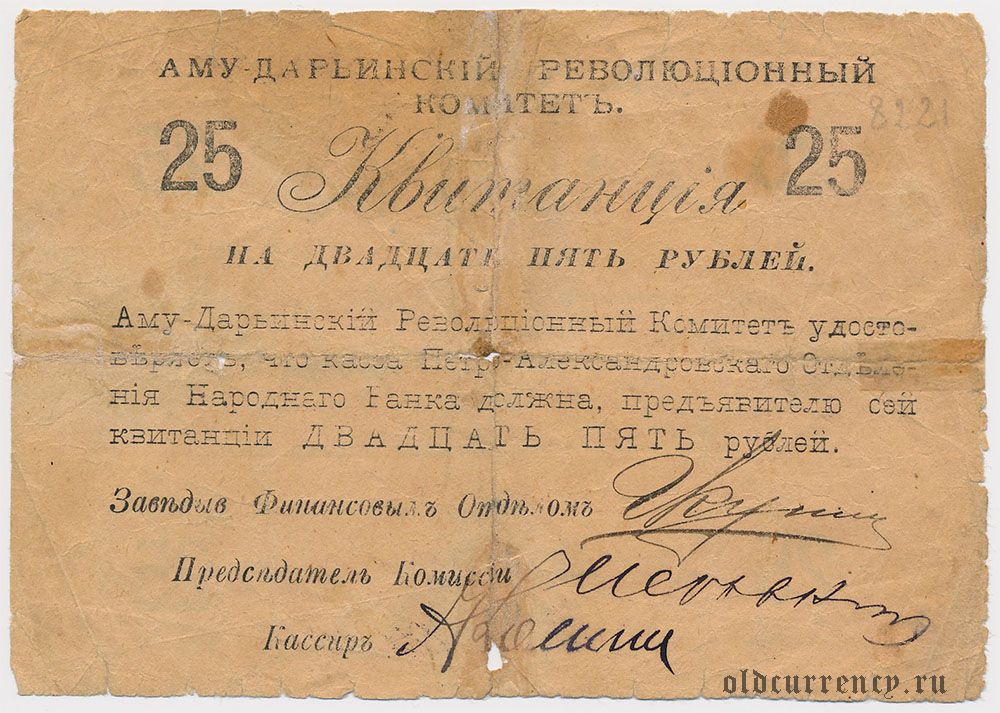 АМУ-ДАРЬИНСКІЙ РЕВОЛЮЦІОННЫЙ
КОМИТЕТЪ.
8221
25 25
Квитанція
НА ДВАДЦАТЬ ПЯТЬ РУБЛЕЙ.
Аму-Дарьинскій Революціонный Комитетъ удосто-
вѣряетъ, что касса Петро-Александровскаго Отдѣле-
нія Народнаго Банка должна, предъявителю сей
квитанціи ДВАДЦАТЬ ПЯТЬ рублей.
Завѣдыв Финансовымъ Отдѣломъ
Предсѣдатель Комиссіи
Кассиръ
oldcurrency.ru